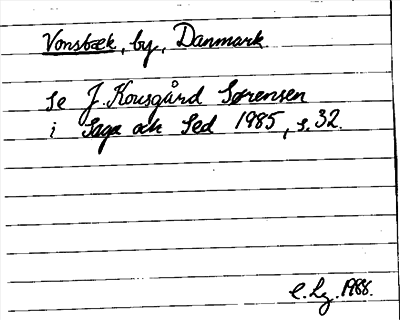 Vonsbæk, by, Danmark
Se J. Kousgård Sørensen
i Saga och Sed 1985, s. 32.
C. Lg. 1988.